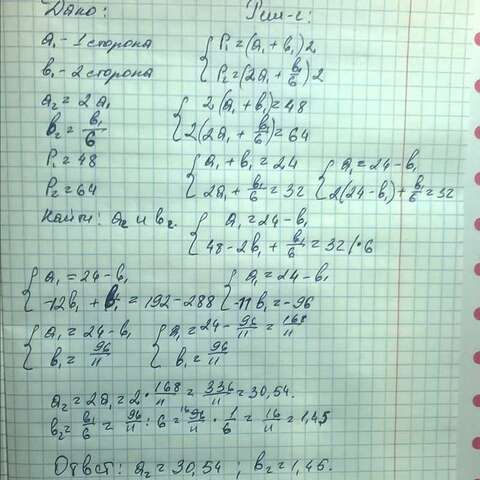 Дано: Реш-е:
a₁ - 1 сторона
b₁ - 2 сторона
a₂ = 2a₁
b₂ = b₁/6
P₁ = 48
P₂ = 64
Найти: a₂ и b₂.
{ P₁ = (a₁ + b₁)2
P₂ = (2a₁ + b₁/6)2
{ 2(a₁ + b₁) = 48
2(2a₁ + b₁/6) = 64
{ a₁ + b₁ = 24
2a₁ + b₁/6 = 32
{ a₁ = 24 - b₁
2(24 - b₁) + b₁/6 = 32
{ a₁ = 24 - b₁
48 - 2b₁ + b₁/6 = 32 /·6
{ a₁ = 24 - b₁
-12b₁ + b₁ = 192 - 288
{ a₁ = 24 - b₁
-11b₁ = -96
{ a₁ = 24 - b₁
b₁ = 96/11
{ a₁ = 24 - 96/11 = 168/11
b₁ = 96/11
a₂ = 2a₁ = 2 · 168/11 = 336/11 = 30,54.
b₂ = b₁/6 = 96/11 : 6 = 16 96/11 · 1/6 = 16/11 = 1,45
Ответ: a₂ = 30,54 ; b₂ = 1,45.